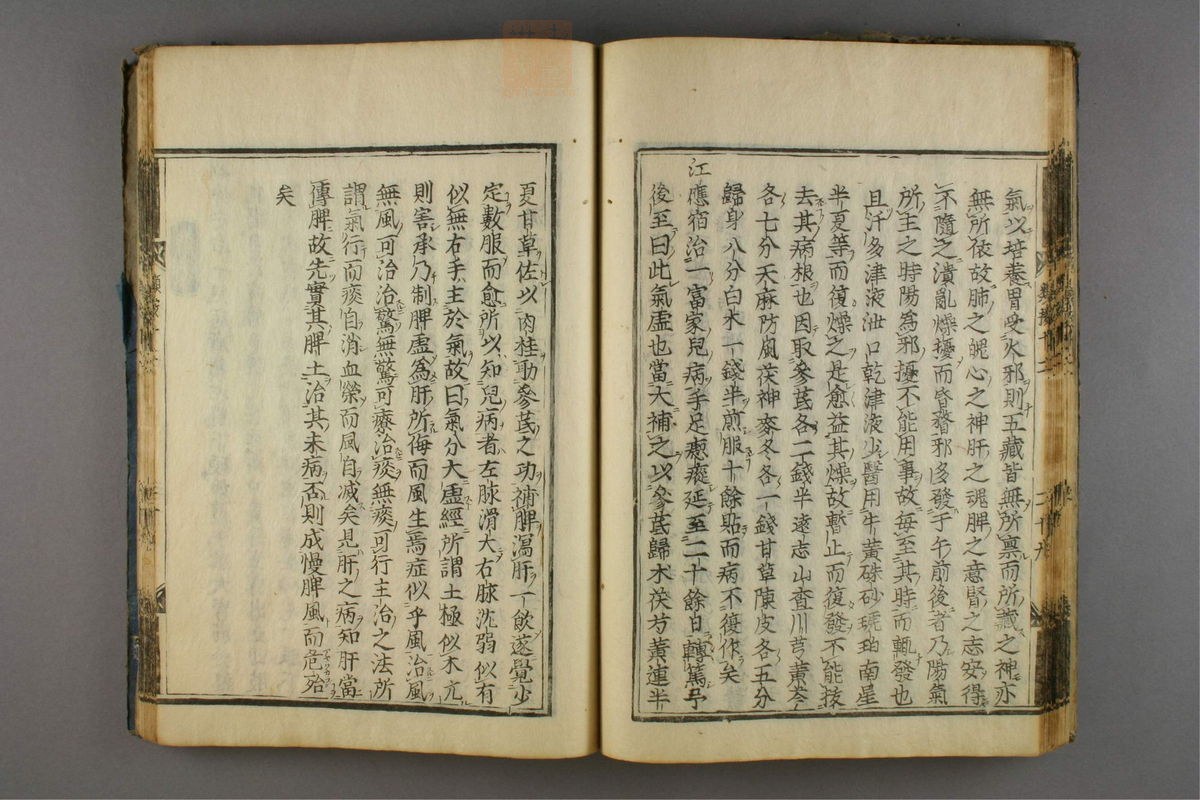 氣以培養胃受火邪則五藏皆無所禀而所藏之神亦
無所依故肺之魄心之神肝之魂脾之意腎之志安得
不隨之潰亂燥擾而昏瞀邪多發于午前後者乃陽氣
所主之時陽爲邪擾不能用事故每至其時而輒發也
且汗多津液泄口乾津液少醫用牛黃硃砂琥珀南星
半夏等而復燥之是愈益其燥故暫止而復發不能拔
去其病根也因取參芪各二錢半遠志山查川芎黃芩
各七分天麻防風茯神麥冬各一錢甘草陳皮各五分
歸身八分白朮一錢半煎服十餘貼而病不復作矣
江應宿治一富家兒病手足瘛瘲延至二十餘日轉篤予
後至曰此氣虛也當大補之以參芪歸朮茯芍黃連半
夏甘草佐以肉桂助參芪之功補脾瀉肝一飲遂覺少
定數服而愈所以知兒病者左脉滑大右脉沈弱似有
似無右手主於氣故曰氣分大虛經所謂土極似木亢
則害承乃制脾虛爲肝所侮而風生焉症似乎風治風
無風可治治驚無驚可療治痰無痰可行主治之法所
謂氣行而痰自消血榮而風自减矣見肝之病知肝當
傳脾故先實其脾土治其未病否則成慢脾風而危殆
矣